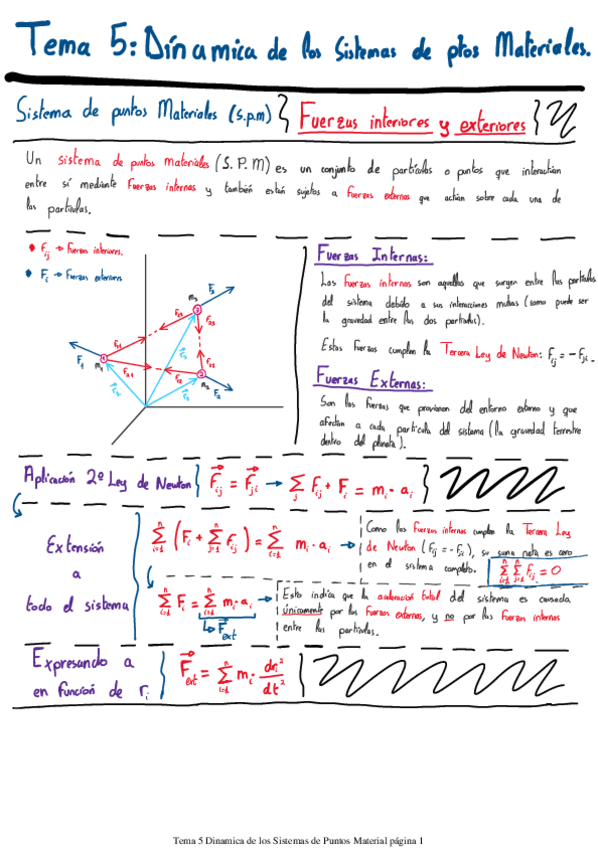 Tema 5: Dínamica de los Sistemas de ptos Materiales.
Sistema de puntos Materiales (s.p.m) Fuerzas interiores y exteriores
Un sistema de puntos materiales (S.P.M) es un conjunto de partículas o puntos que interactúan
entre sí mediante Fuerzas internas y también están sujetos a Fuerzas externas que actúan sobre cada una de
las partículas.
• F_ij → Fuerzas interiores.
• F_i → Fuerzas exteriores
F_3
m_3
F_1
m_1
m_2
F_2
Fuerzas Internas:
Las Fuerzas internas son aquellas que surgen entre las partículas
del sistema debido a sus interacciones mutuas (como puede ser
la gravedad entre las dos partículas).
Estas Fuerzas cumplen la Tercera Ley de Newton: F_ij = -F_ji.
Fuerzas Externas:
Son las Fuerzas que provienen del entorno externo y que
afectan a cada partícula del sistema (la gravedad terrestre
dentro del planeta).
Aplicación 2º Ley de Newton F_ij = F_ji → Σ_j F_ij + F_i = m_i · a_i
Extensión
a
todo el sistema
Σ_{i=1}^n (F_i + Σ_{j=1}^n F_ij) = Σ_{i=1}^n m_i · a_i →
Como las Fuerzas internas cumplen la Tercera Ley
de Newton (F_ij = -F_ji), su suma neta es cero
en el sistema completo. Σ_{i=1}^n Σ_{j=1}^n F_ij = 0
Σ_{i=1}^n F_i = Σ_{i=1}^n m_i · a_i →
F_ext
Esto indica que la aceleración total del sistema es causada
únicamente por las Fuerzas externas, y no por las Fuerzas internas
entre las partículas.
Expresando a
en función de r_i
F_ext = Σ_{i=1}^n m_i · dr_i^2/dt^2
Tema 5 Dinamica de los Sistemas de Puntos Material página 1